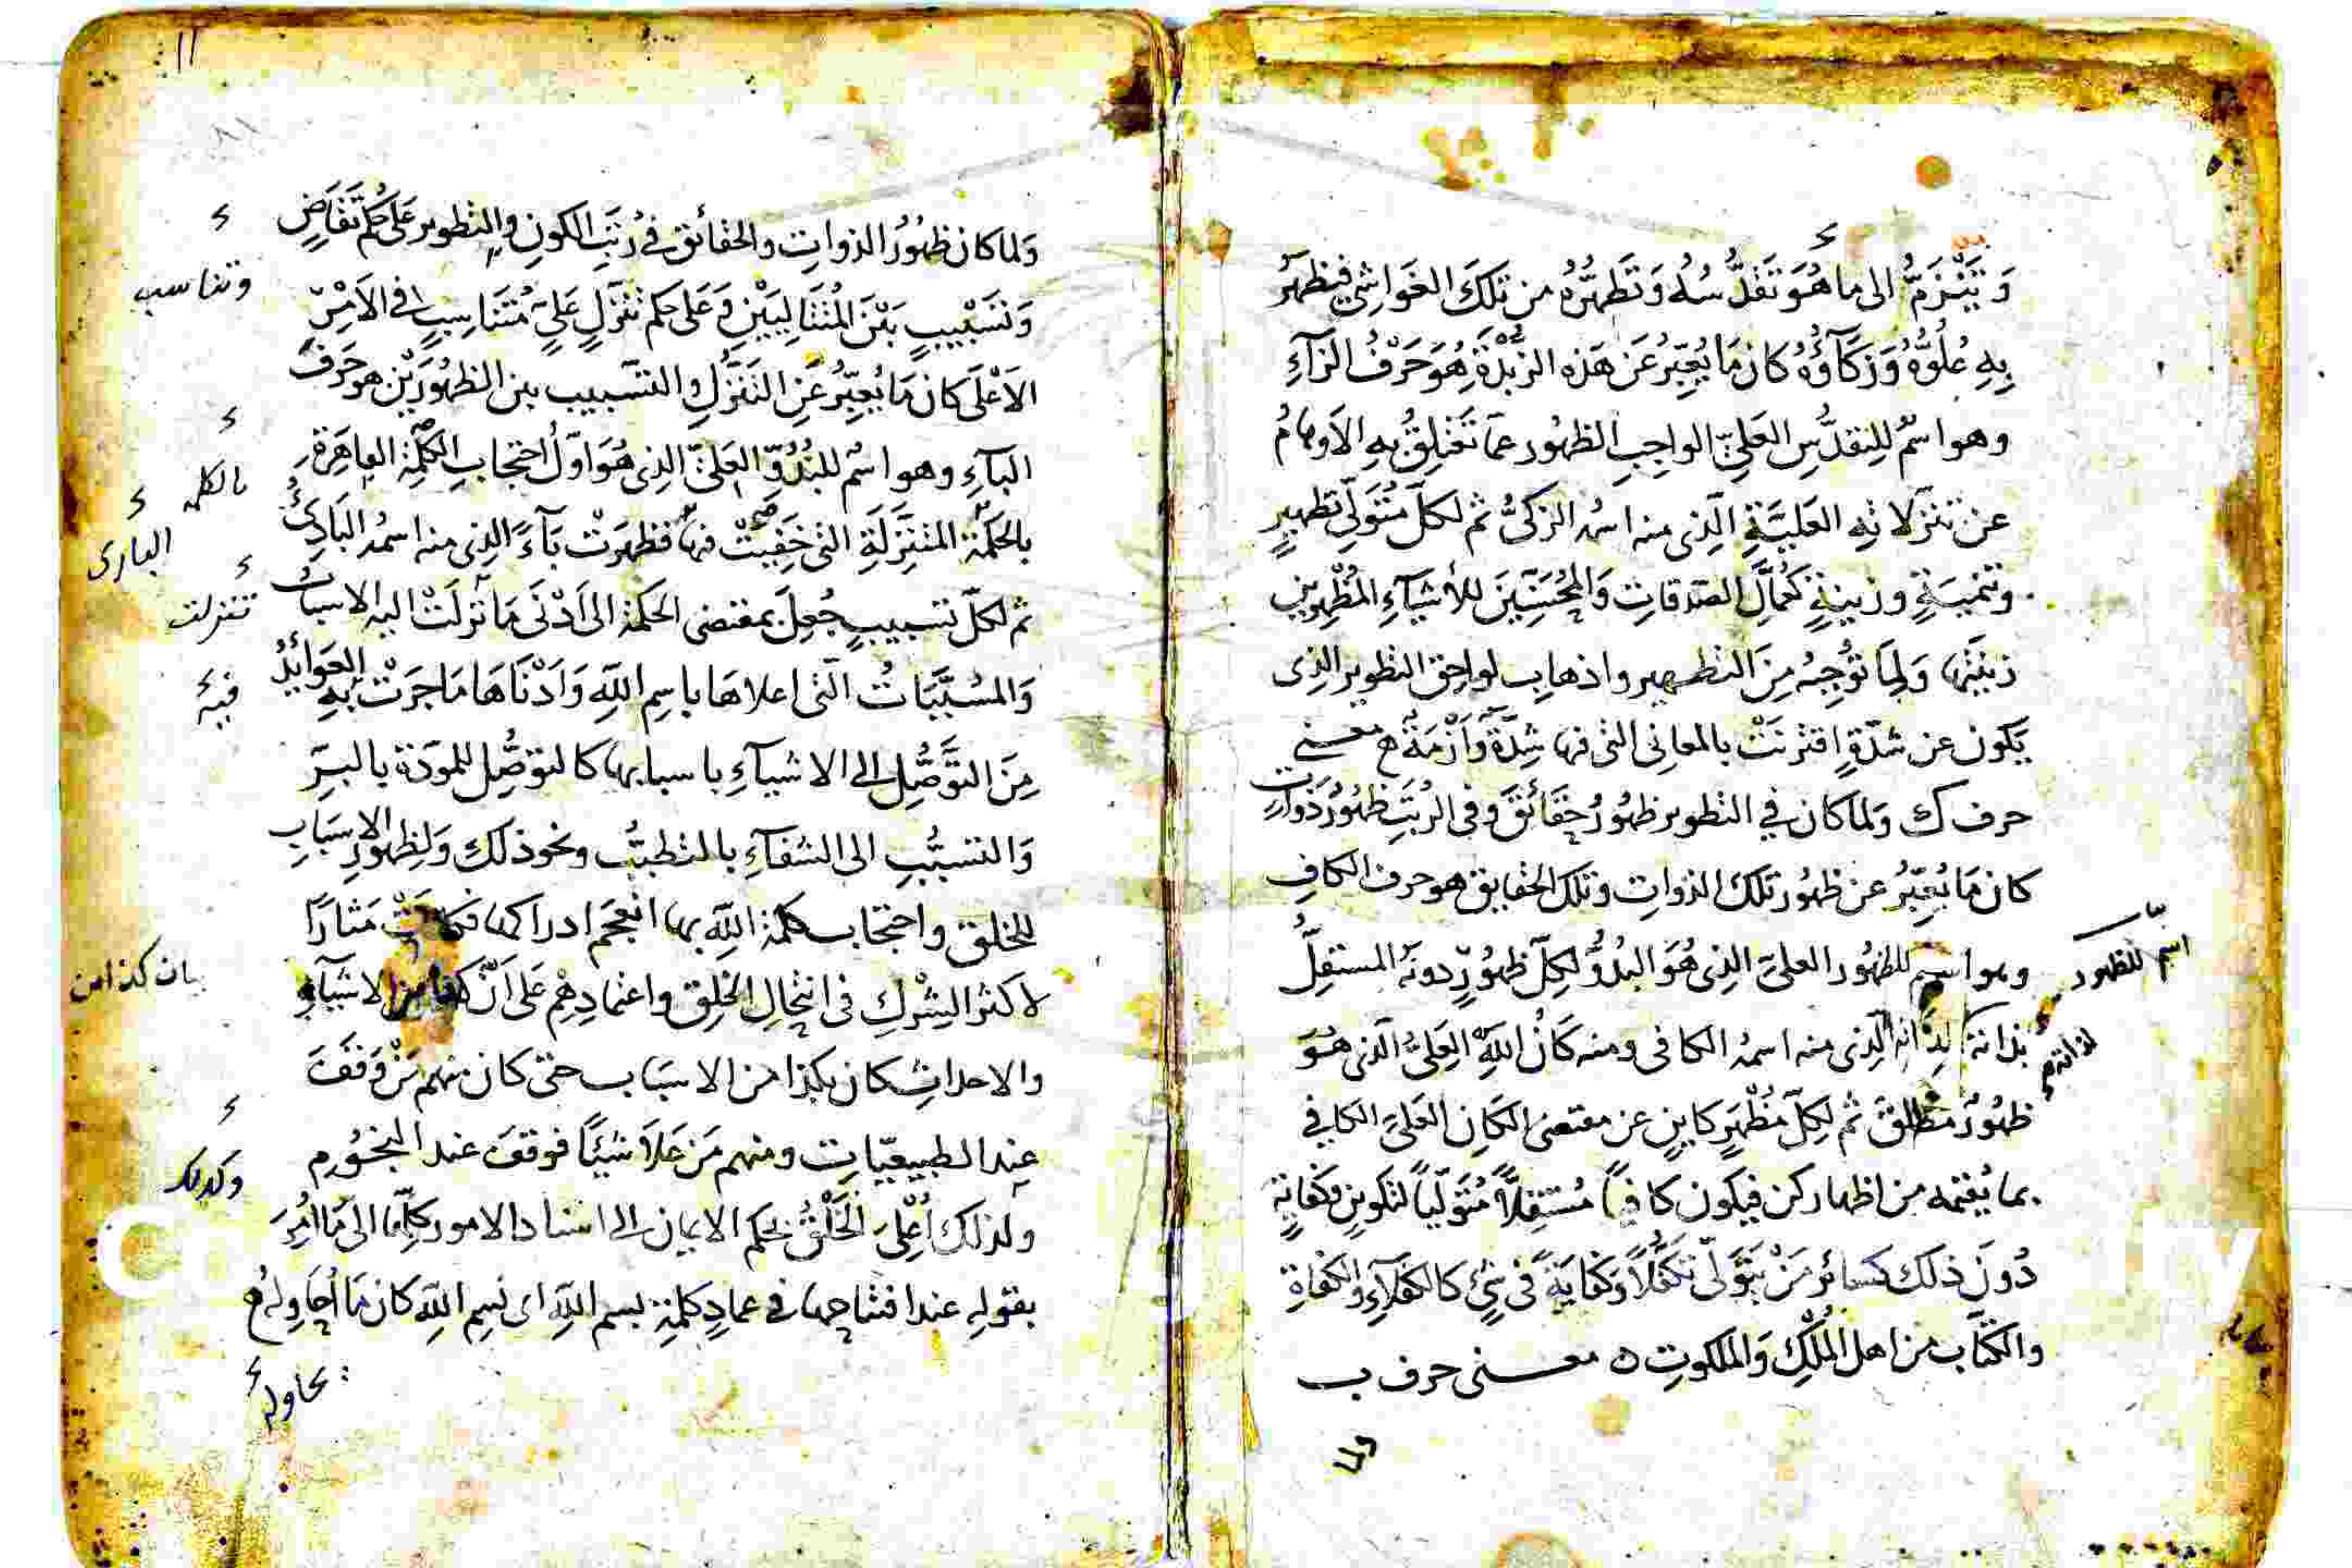 وَيَتَنَزَّهُ الى ما هُوَ تَقَدُّسُهُ وَتَطَهُّرُهُ من تلكَ الغَواشِي فيظهَرُ
بِهِ عُلُوُّهُ وَزَكَآؤُهُ كان مَا يُعبِّرُ عَن هَذه الزُبْدَةِ هُوَ حَرْفُ الزآءِ
وهو اسمٌ للتقدُّسِ العَليِّ الواجبِ الظهُور عمّا تَعْتَلِقُ بهِ الاَوهامُ
عن تنزّلاتِه العَليَّةِ الّذى منه اسمُه الزكىُّ ثم لكلّ مُتَوَلِّى تطهيرٍ
وتنميَةٍ وزينةٍ كعُمالِ الصّدقاتِ وَالمُحَسِّنِينَ للأشيآءِ المُظْهِرين
زينتَها وَلِمَا تُوجِبُه مِنَ التطهير واذهابِ لواحِق التطوير الذى
يكون عن شدّةٍ اقترنَتْ بالمعانى التى فيها شِدّةٌ وَاَزْمَةٌ معنى
حرف ك ولما كان في التطوير ظهُورُ حَقَائقَ وفى الرُتَبِ ظهُورُ ذَوَاتٍ
كان مَا يُعبِّرُ عن ظهُور تلك الذواتِ وتلك الحقايق هو حرف الكافِ
وهو اسمٌ للظهُور العليّ الذِى هُوَ البُدُوُّ لكلّ ظهُورٍ دونَه المستقلُّ
اسمٌ للظهور
بذاتهِ لِذَاتِه الّذى منه اسمُهُ الكافى ومنه كَانَ اللّهُ العَلىُّ الّذى هُوَ
لذاته
ظهُورٌ مُطلقٌ ثم لِكلّ مُظْهِرٍ كاينٍ عن مقتضى الكَانِ العَلىّ الكافي
بما يُقيمه من اظهار كن فيكون كافياً مُستقِلاًّ مُتَوَلّياً لتكوينٍ وكفايةٍ
دُونَ ذلك كسائر مَنْ يَتَوَلّى تكَفُّلاً وَكفايَةً فى شئٍ كالكفلآءِ والكفاةِ
والكتّاب من اهل المُلْكِ وَالملكوتِ ٥ معنى حرف ب
ولما
١١
وَلما كان ظهُورُ الذواتِ والحقائق فى رُتَبِ الكونِ والتطوير عَلى حُكم تَقَاضٍ
وتناسب
وَتَسْبِيبٍ بَيْنَ المُتَتَالِيَيْنِ وَعَلى حكم تنَزُّلٍ عَليٍّ مُتنَاسِبٍ في الاَمْرِ
الاَعْلَى كان مَا يُعبِّرُ عَنِ التَنَزُّلِ والتسْبيب بين الظهُورَيْن هو حَرفَ
البآءِ وهو اسمٌ للبُدُوِّ العَليِّ الذى هُوَ اوّلُ احتجابِ الكَلِمَةِ القاهرةِ
بالكلمة
بالحكمة المتنزّلَةِ التى خَفِيَتْ فيها فظهرَتْ بآءً الذى منه اسمُه البَادِئُ
البارى
ثم لكلّ تسبيبٍ جُعِلَ بمقتضى الحَكمة الى اَدْنَى مَا تَنزلَتْ اليه الاسبابُ
تنزلت
وَالمُسَبَّبَاتُ الّتى اعلاهَا باسِم اللّهِ وَاَدْنَاهَا مَا جرَتْ بهِ العَوائدُ
فيه
مِنَ التوَصُّلِ الى الاشيآءِ باسبابها كالتوصُّل للمودّة بالبِرِّ
وَالتسَبُّبِ الى الشفآءِ بالتطبُّب ونحو ذلك وَلِظهُورِ الاسبَابِ
للخلق واحتجاب كلمة اللّه بها انعجم ادراكها فكانَتْ مَثارًا
لاكثر الشِرْكِ فى انتحال الخلق واعتمادِهم عَلى اَنّ كذا من الاشيآءِ
بان كذا من
والاحداثِ كان بكذا من الاسبَاب حتى كان منهم مَنْ وَقَفَ
عِند الطبيعيّات ومنهم مَن عَلاَ شيئًا فوقفَ عند النجُوم
وكذلك
ولذلك اُعْلِىَ الخَلْقُ بحكم الايمان الى اسناد الامور كلِّها الى مَا اُمِرَ
بقولِه عند افتتاحها في عمادِ كلمةِ بسم اللّهِ اى بسِم اللّهِ كان مَا اُحَاوِلُه
يحاوله